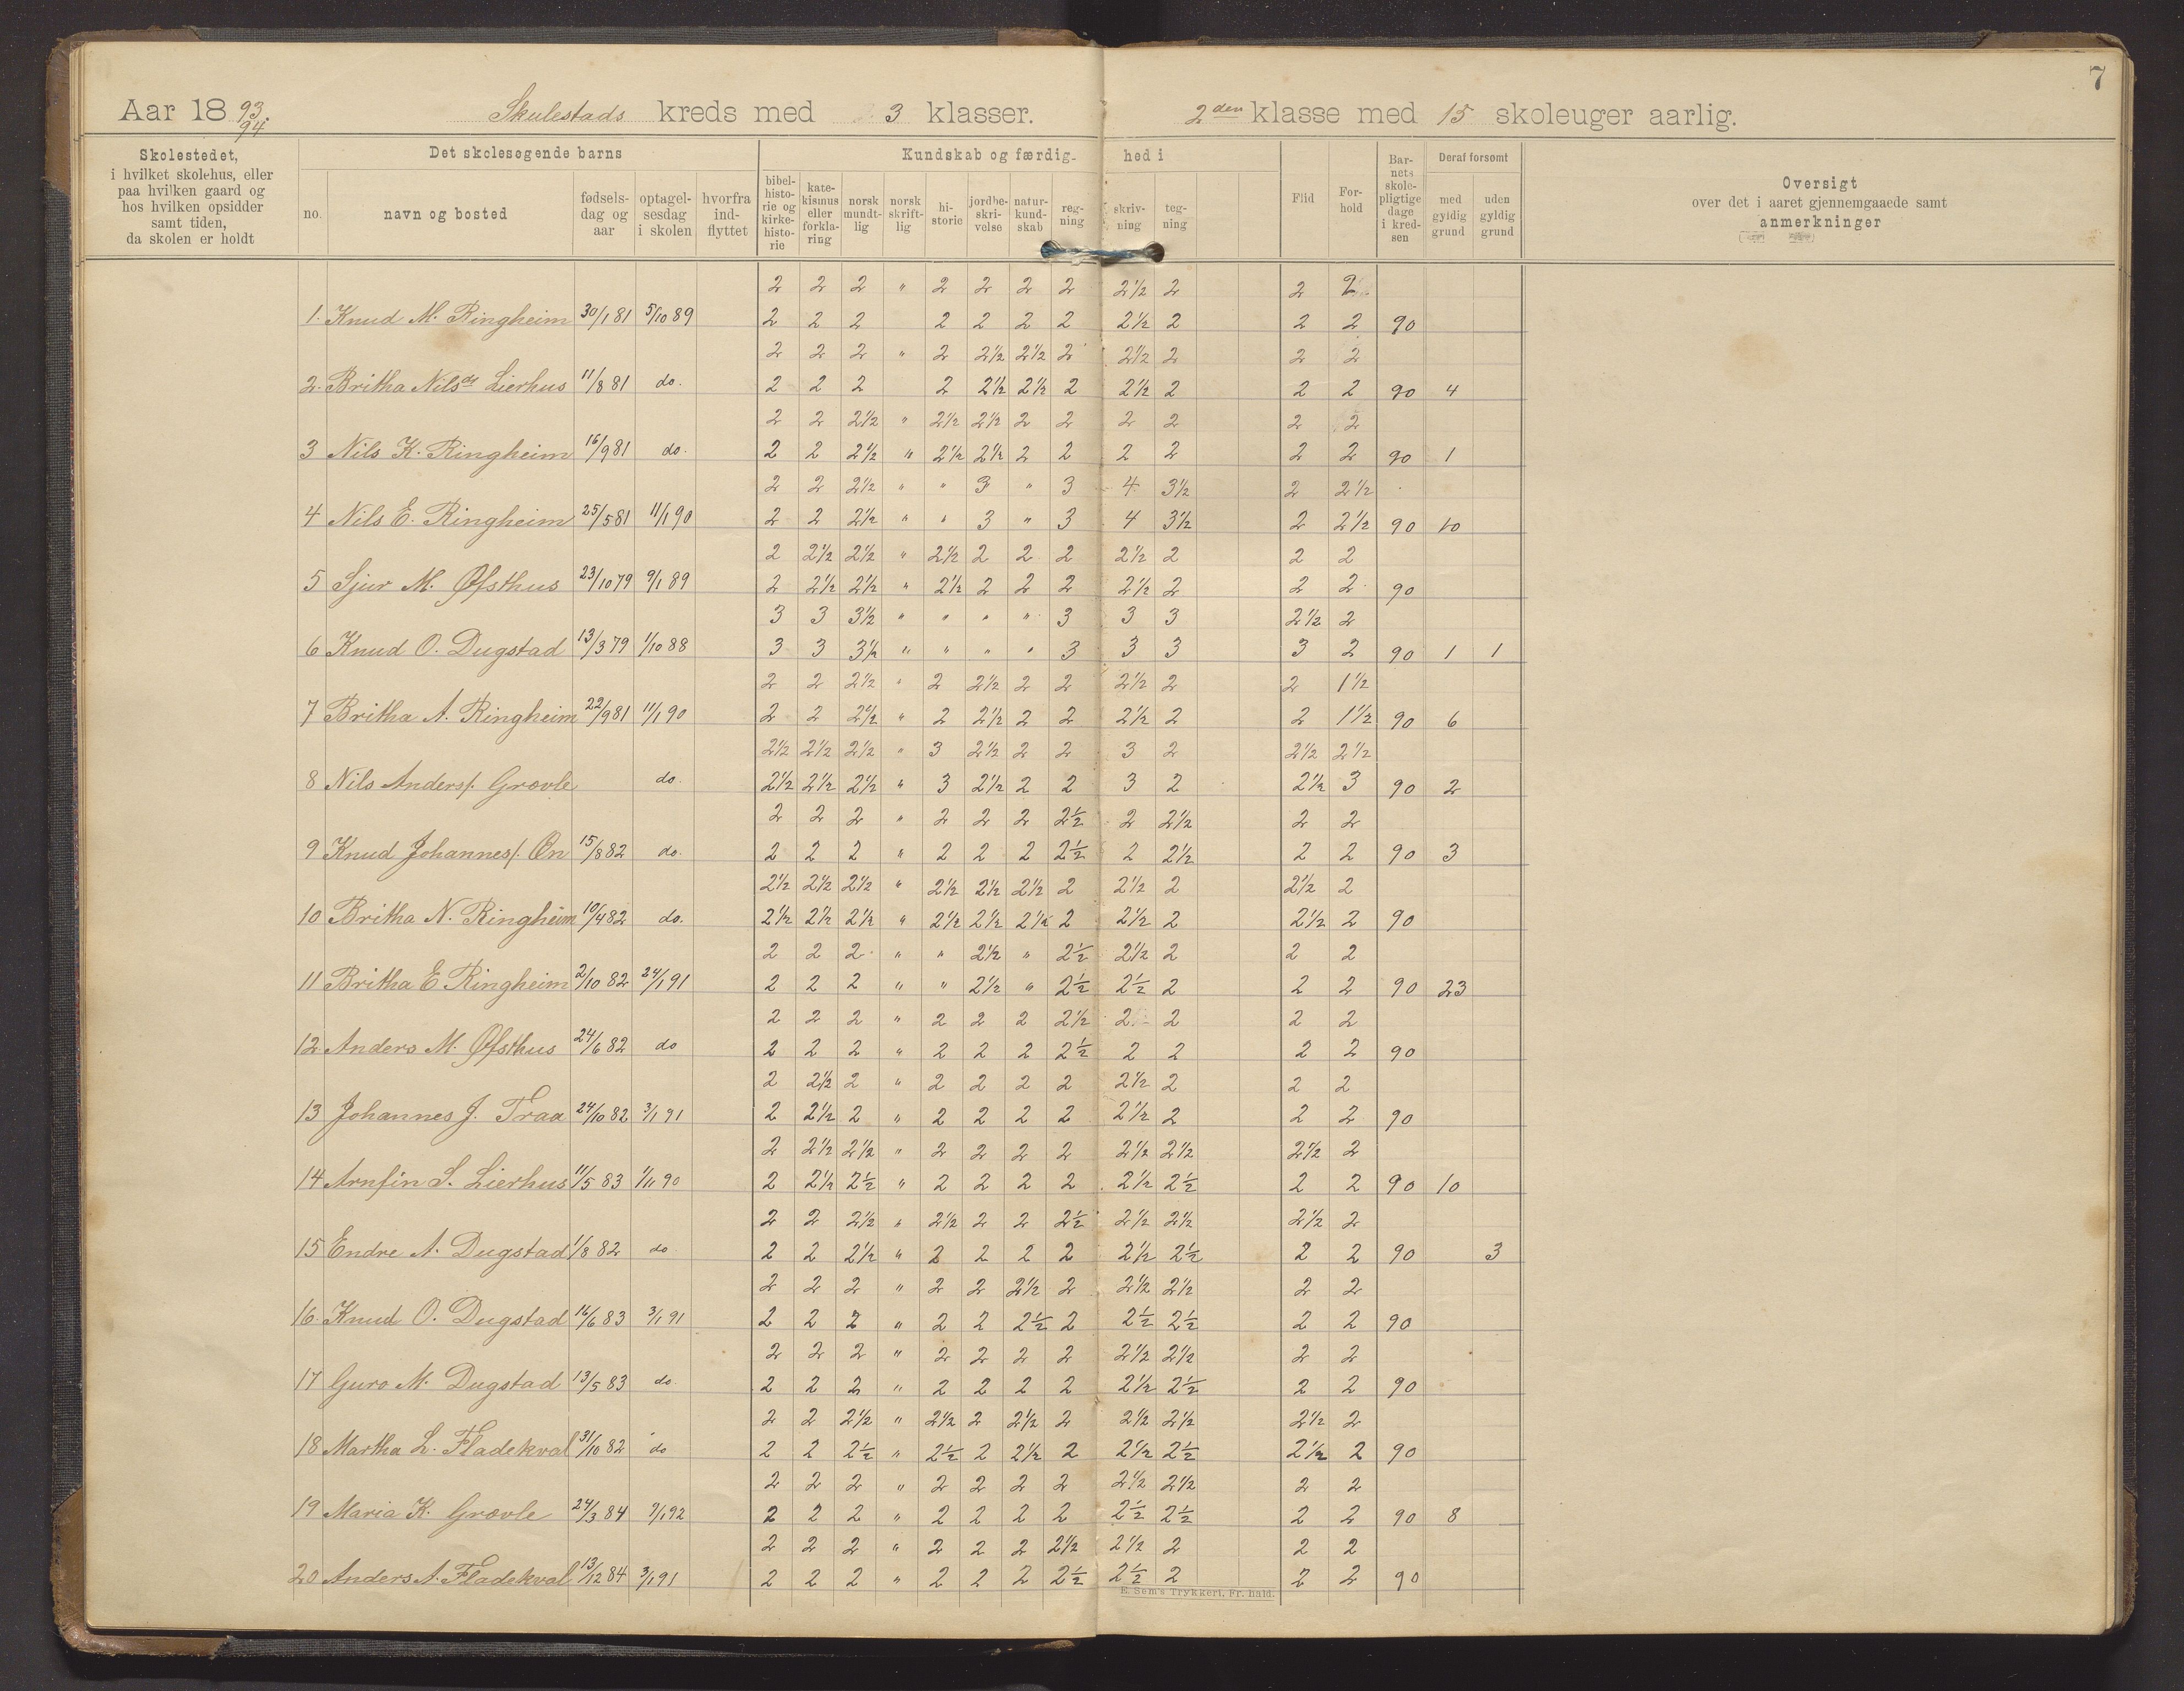 7
Aar 18 93/94. Skulestads kreds med 3 klasser. 2den klasse med 15 skoleuger aarlig.
Skolestedet, i hvilket skolehus, eller paa hvilken gaard og hos hvilken opsidder samt tiden, da skolen er holdt
Det skolesøgende barns
no. navn og bosted fødsels-dag og aar optagel-sesdag i skolen hvorfra ind-flyttet
Kundskab og færdig- hed i
bibel-histo-rie og kirke-histo-rie kate-kismus eller forkla-ring norsk mundt-lig norsk skrift-lig hi-storie jordbe-skri-velse natur-kund-skab reg-ning skriv-ning teg-ning
Flid For-hold Bar-nets skole-pligtige dage i kred-sen
Deraf forsømt
med gyldig grund uden gyldig grund
Oversigt
over det i aaret gjennemgaaede samt
anmerkninger
2 2 2 " 2 2 2 2 2½ 2 2 2
1. Knud M. Ringheim 30/1 81 5/10 89 2 2 2 2 2 2 2 2½ 2 2 2 90
2 2 2 " 2 2½ 2½ 2 2½ 2 2 2
2. Britha Nilsdr Lierhus 11/8 81 do. 2 2 2 2 2½ 2½ 2 2½ 2 2 2 90 4
2 2 2½ " 2½ 2½ 2 2 2 2 2 2
3 Nils K. Ringheim 16/9 81 do. 2 2 2½ " 2½ 2½ 2 2 2 2 2 2 90 1
2 2 2½ " " 3 " 3 4 3½ 2 2½
4 Nils E. Ringheim 25/5 81 11/1 90 2 2 2½ " " 3 " 3 4 3½ 2 2½ 90 10
2 2½ 2½ " 2½ 2 2 2 2½ 2 2 2
5 Sjur M. Øfsthus 23/10 79 9/1 89 2 2½ 2½ " 2½ 2 2 2 2½ 2 2 2 90
3 3 3½ " " " " 3 3 3 2½ 2
6 Knud O. Dugstad 13/3 79 1/10 88 3 3 3½ " " " " 3 3 3 3 2 90 1 1
2 2 2½ " 2 2½ 2 2 2½ 2 2 1½
7 Britha A. Ringheim 22/9 81 11/1 90 2 2 2½ " 2 2½ 2 2 2½ 2 2 1½ 90 6
2½ 2½ 2½ " 3 2½ 2 2 3 2 2½ 2½
8 Nils Anders/. Grovle do. 2½ 2½ 2½ " 3 2½ 2 2 3 2 2½ 3 90 2
2 2 2 " 2 2 2 2½ 2 2½ 2 2
9 Knud Johannes/. Øn 15/8 82 do. 2 2 2 " 2 2 2 2½ 2 2½ 2 2 90 3
2½ 2½ 2½ " 2½ 2½ 2½ 2 2½ 2 2½ 2
10 Britha N. Ringheim 10/4 82 do. 2½ 2½ 2½ " 2½ 2½ 2½ 2 2½ 2 2½ 2 90
2 2 2 " " 2½ " 2½ 2½ 2 2 2
11 Britha E Ringheim 2/10 82 24/1 91 2 2 2 " " 2½ " 2½ 2½ 2 2 2 90 23
2 2 2 " 2 2 2 2½ 2 2 2 2
12 Anders M. Øfsthus 24/6 82 do 2 2 2 " 2 2 2 2½ 2 2 2 2 90
2 2½ 2 " 2 2 2 2 2½ 2 2 2
13 Johannes J. Traa 24/10 82 3/1 91 2 2½ 2 " 2 2 2 2 2½ 2 2 2 90
2 2½ 2½ " 2 2 2 2 2½ 2½ 2½ 2
14 Arnfin S. Lierhus 11/5 83 1/11 90 2 2½ 2½ " 2 2 2 2 2½ 2½ 2 2 90 10
2 2 2½ " 2½ 2 2 2½ 2½ 2½ 2½ 2
15 Endre A. Dugstad 1/8 82 do 2 2 2½ " 2 2 2 2 2½ 2½ 2 2 90 3
2 2 2 " 2 2 2½ 2 2½ 2½ 2 2
16. Knud O. Dugstad 16/6 83 3/1 91 2 2 2 " 2 2 2½ 2 2½ 2½ 2 2 90
2 2 2 " 2 2 2 2 2½ 2½ 2 2
17 Guro M. Dugstad 13/5 83 do. 2 2 2 " 2 2 2 2 2½ 2½ 2 2 90
2 2 2½ " 2½ 2 2½ 2 2½ 2½ 2½ 2
18 Martha L. Fladekval 31/10 82 do 2 2 2½ " 2½ 2 2½ 2 2½ 2½ 2½ 2 90
2 2 2 " 2 2 2 2 2½ 2½ 2 2
19 Maria K. Grovle 24/3 84 7/1 92 2 2 2 " 2 2 2 2 2½ 2½ 2 2 90 8
2 2 2 " 2 2 2 2½ 2½ 2 2 2
20 Anders A. Fladekval 13/12 84 3/1 91 2 2 2 " 2 2 2 2½ 2½ 2 2 2 90
E. Sem's Trykkeri, Fr. hald.